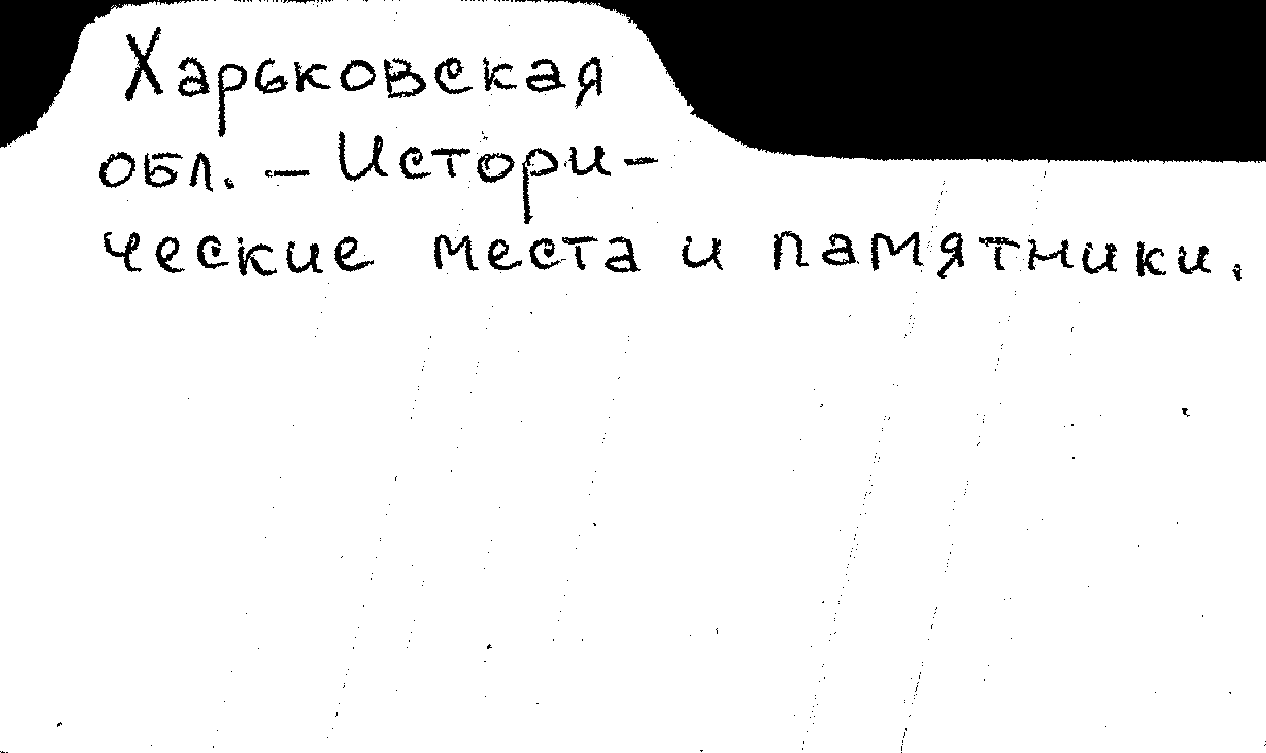 Харьковская
обл. – Истори-
ческие места и памятники.